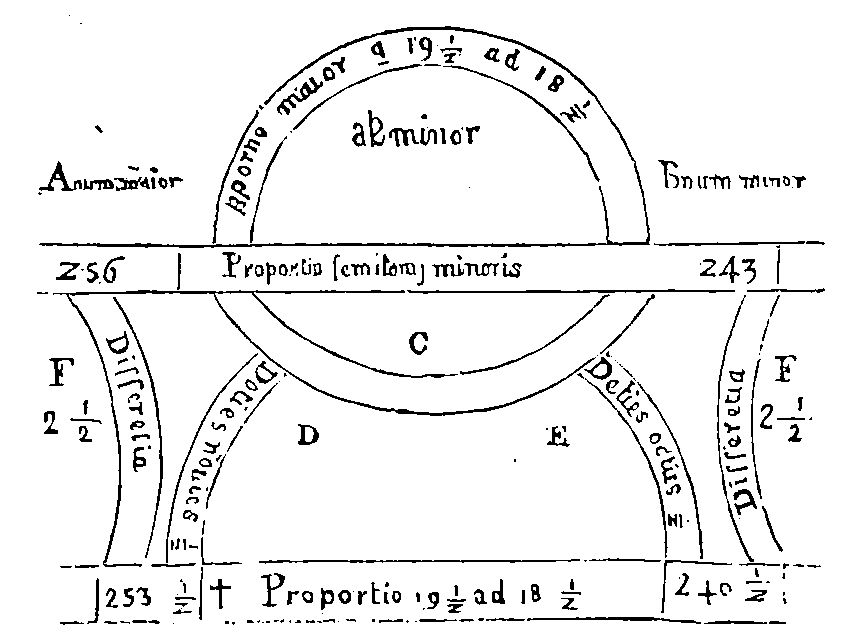 Aporno maior q 19 1/2 ad 18 1/2
ab minor
A num maior
B num minor
256
Proportio semitonij minoris
243
C
F
2 1/2
Differetia
Deties nouies
D
E
Deties octies
Differetia
F
2 1/2
253 1/2
† Proportio 19 1/2 ad 18 1/2
240 1/2